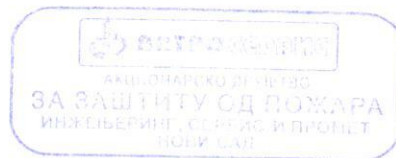 АКЦИОНАРСКО ДРУШТВО
ЗА ЗАШТИТУ ОД ПОЖАРА
ИНЖЕЊЕРИНГ, СЕРВИС И ПРОМЕТ
НОВИ САД